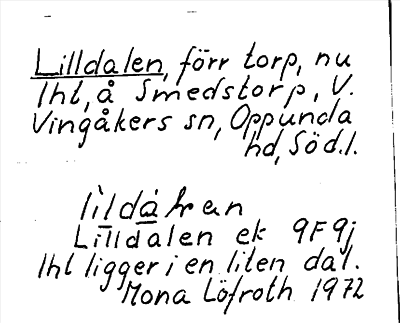 Lilldalen, förr torp, nu
lht, å Smedstorp, V.
Vingåkers sn, Oppunda
hd, Söd.l.
Lilldalen ek 9F9j
lht ligger i en liten dal.
Mona Löfroth 1972